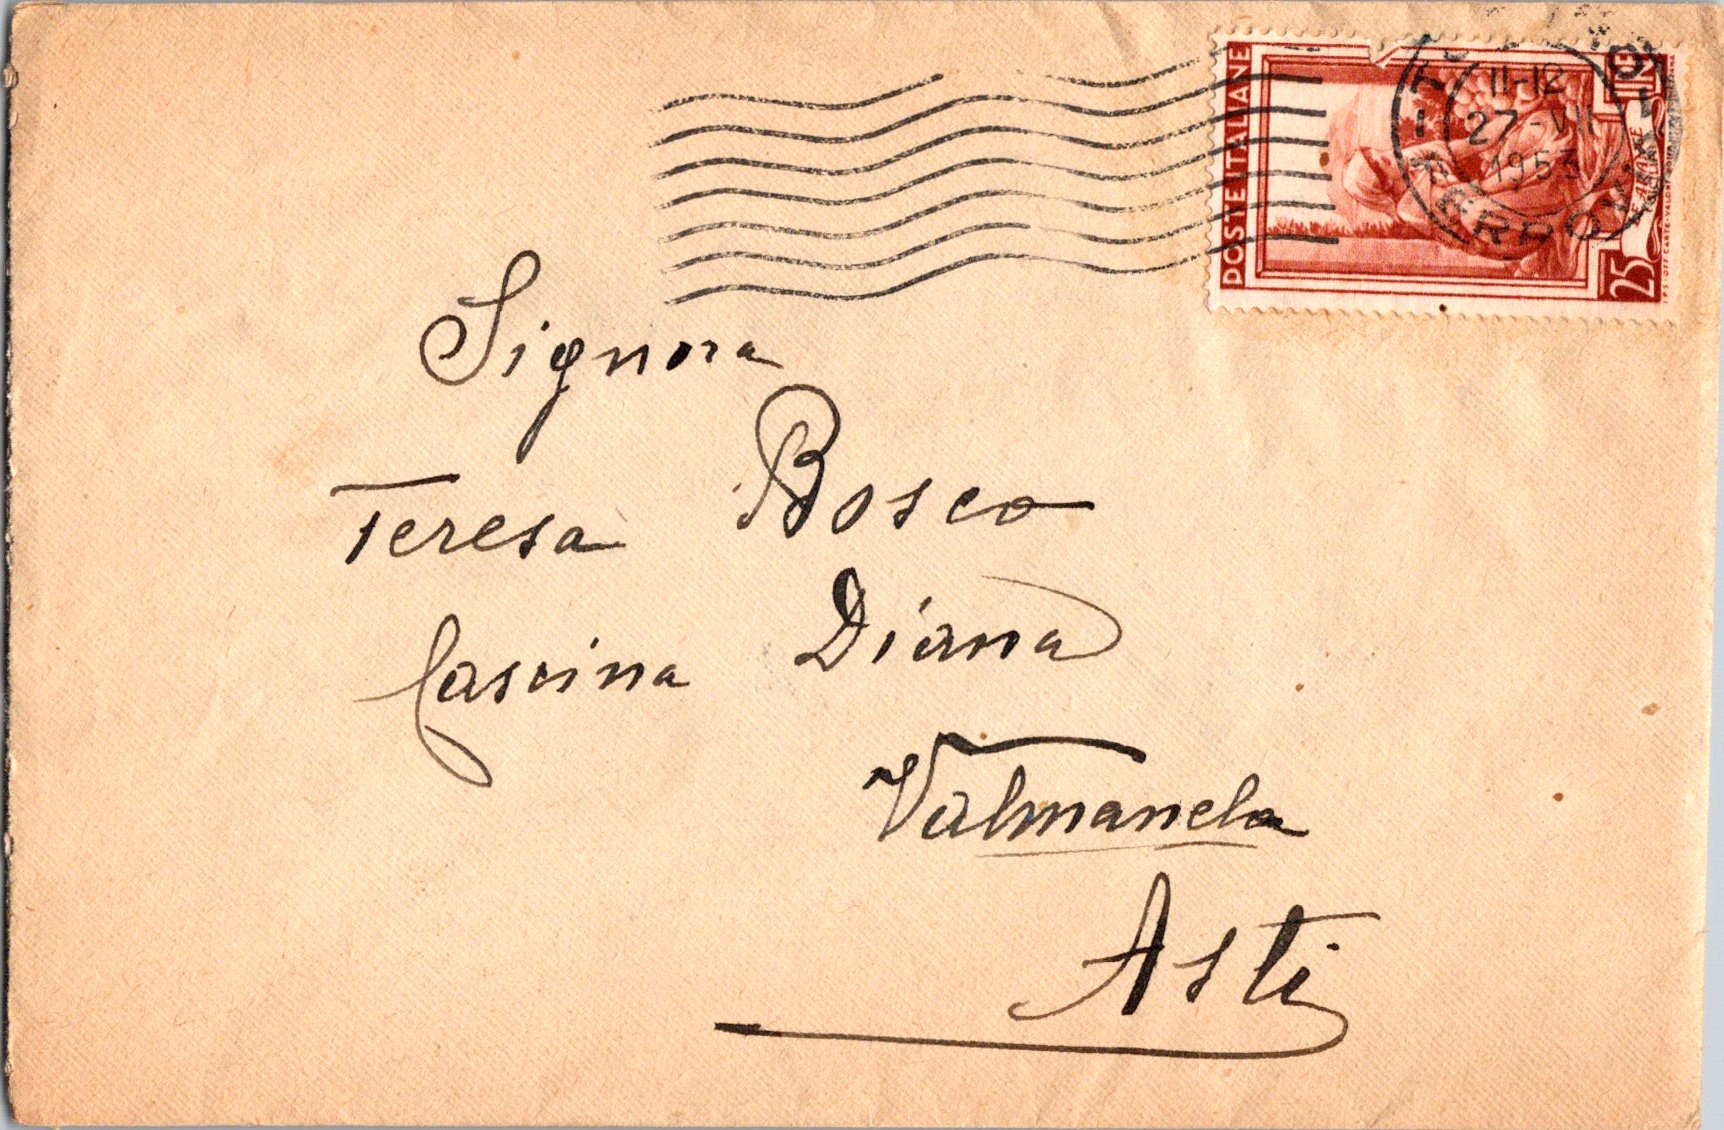 POSTE ITALIANE
LIRE
25
11-12
27-VII
1953
FERROVIA
Signora
Teresa Bosco
Cascina Diana
Valmanera
Asti